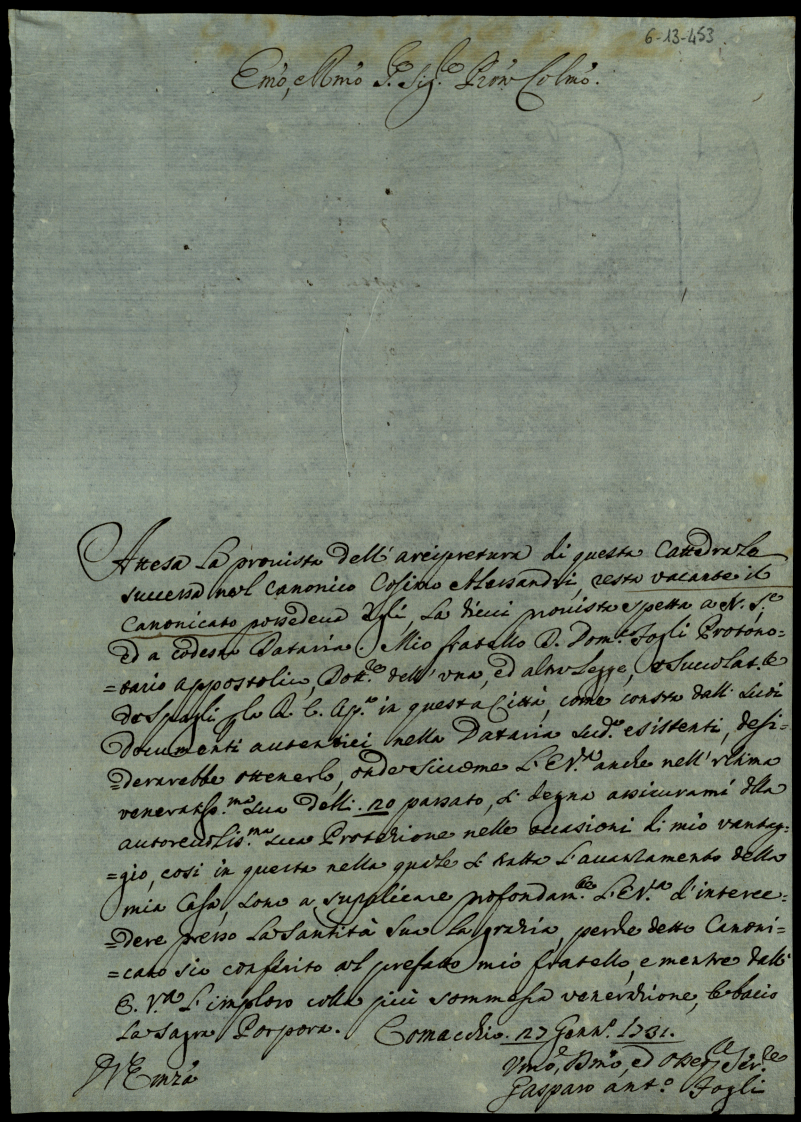 6-13-453
Emo, e Rmo Sre. Sigre. Pron Colmo.
Attesa la provista dell'arcipretura di questa Cattedrale
successa nel Canonico Cosimo Alessandri resta vacante il
Canonicato possedeva Egli, la di cui provista spetta a N. Sre
ed a codesta Dataria. Mio fratello D. Domco. Fogli Protono=
=tario appostolico, Dottre. dell'una, ed altra legge, e Succolatre.
de Spogli p la R. C. Apca. in questa Città, come consta dalli Suoi
documenti autentici nella Dataria Suda. esistenti, desi=
=derarebbe ottenerlo, onde siccome L'E Va. anche nell'ultima
veneratissma. Sua delli. 20 passato, si degna assicurarmi della
autorevolisma. sua Protezione nelle occasioni di mio vantag=
=gio, così in questa nella quale si tratta l'avanzamento della
mia Casa, sono a supplicare profondamte. L'E V.ra d'interce=
=dere presso La Santità Sua la grazia, perche detto Canoni=
=cato sia conferito al prefatto mio fratello, e mentre dall'
E. Vra L'imploro colla più sommessa venerazione, le bacio
la Sagra Porpora. Comacchio. 27 Genno. 1731.
D V Emza
Umo, Dmo, ed Obblmo Serre
Gasparo Anto. Fogli